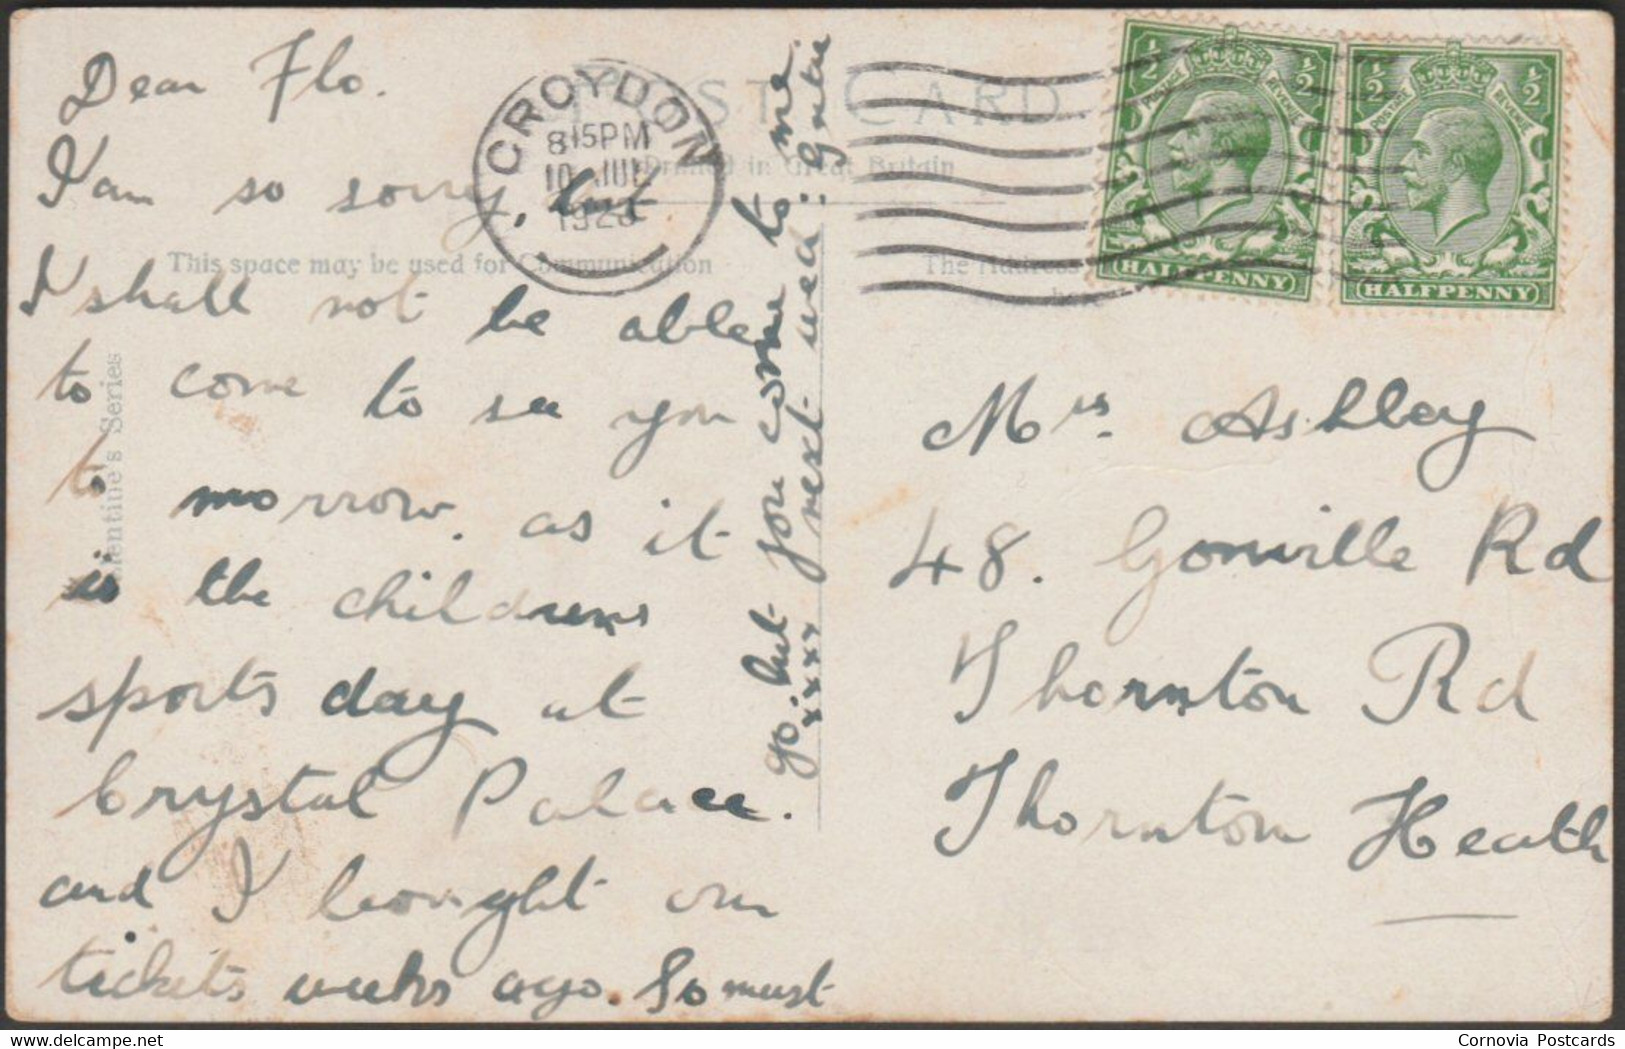 Dear Flo.
I am so sorry, but
I shall not be able
to come to see you
to morrow. as it
is the childrens
sports day at
Crystal Palace.
and I bought our
tickets weeks ago. So must
go. but you come to me
xxxx next wed:
POST CARD
Printed in Great Britain
This space may be used for Communication
The Address
Valentine's Series
CROYDON
8.15PM
10 JUL
½ ½
POSTAGE REVENUE
HALFPENNY
½ ½
POSTAGE REVENUE
HALFPENNY
Mrs. Ashbey
48. Gonville Rd
Thornton Rd
Thornton Heath
Cornovia Postcards